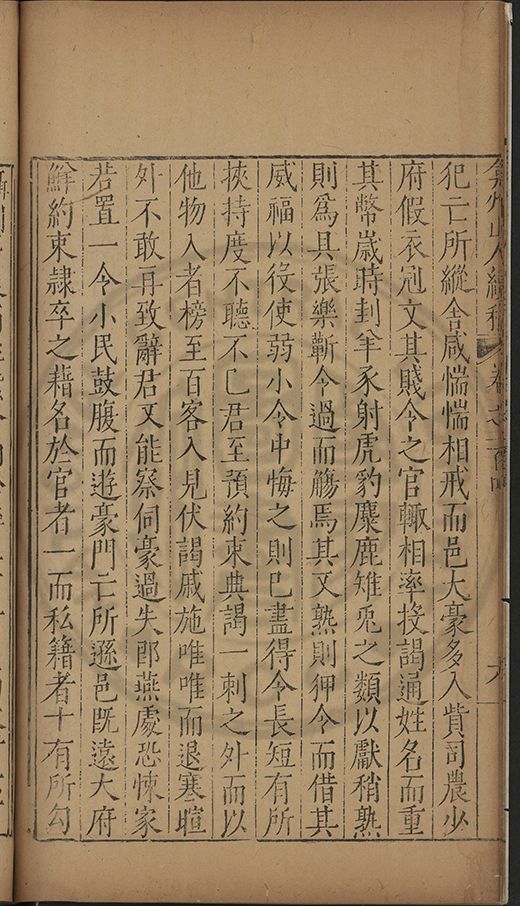 弇州山人續稿 卷之一百
犯亡所縱舍咸惴惴相戒而邑大豪多入貲司農少
府假衣冠文其賤令之官輙相率投謁通姓名而重
其幣歲時刲羊豕射虎豹麋鹿雉兎之類以獻稍熟
則爲具張樂蘄令過而觴焉其又熟則狎令而借其
威福以役使弱小令中悔之則已盡得令長短有所
挾持度不聽不已君至預約束典謁一刺之外而以
他物入者榜至百客入見伏謁戚施唯唯而退寒暄
外不敢再致辭君又能察伺豪過失郎燕處恐悚家
若置一令小民鼓腹而遊豪門亡所遜邑旣遠大府
鮮約束隷卒之藉名於官者一而私籍者十有所勾